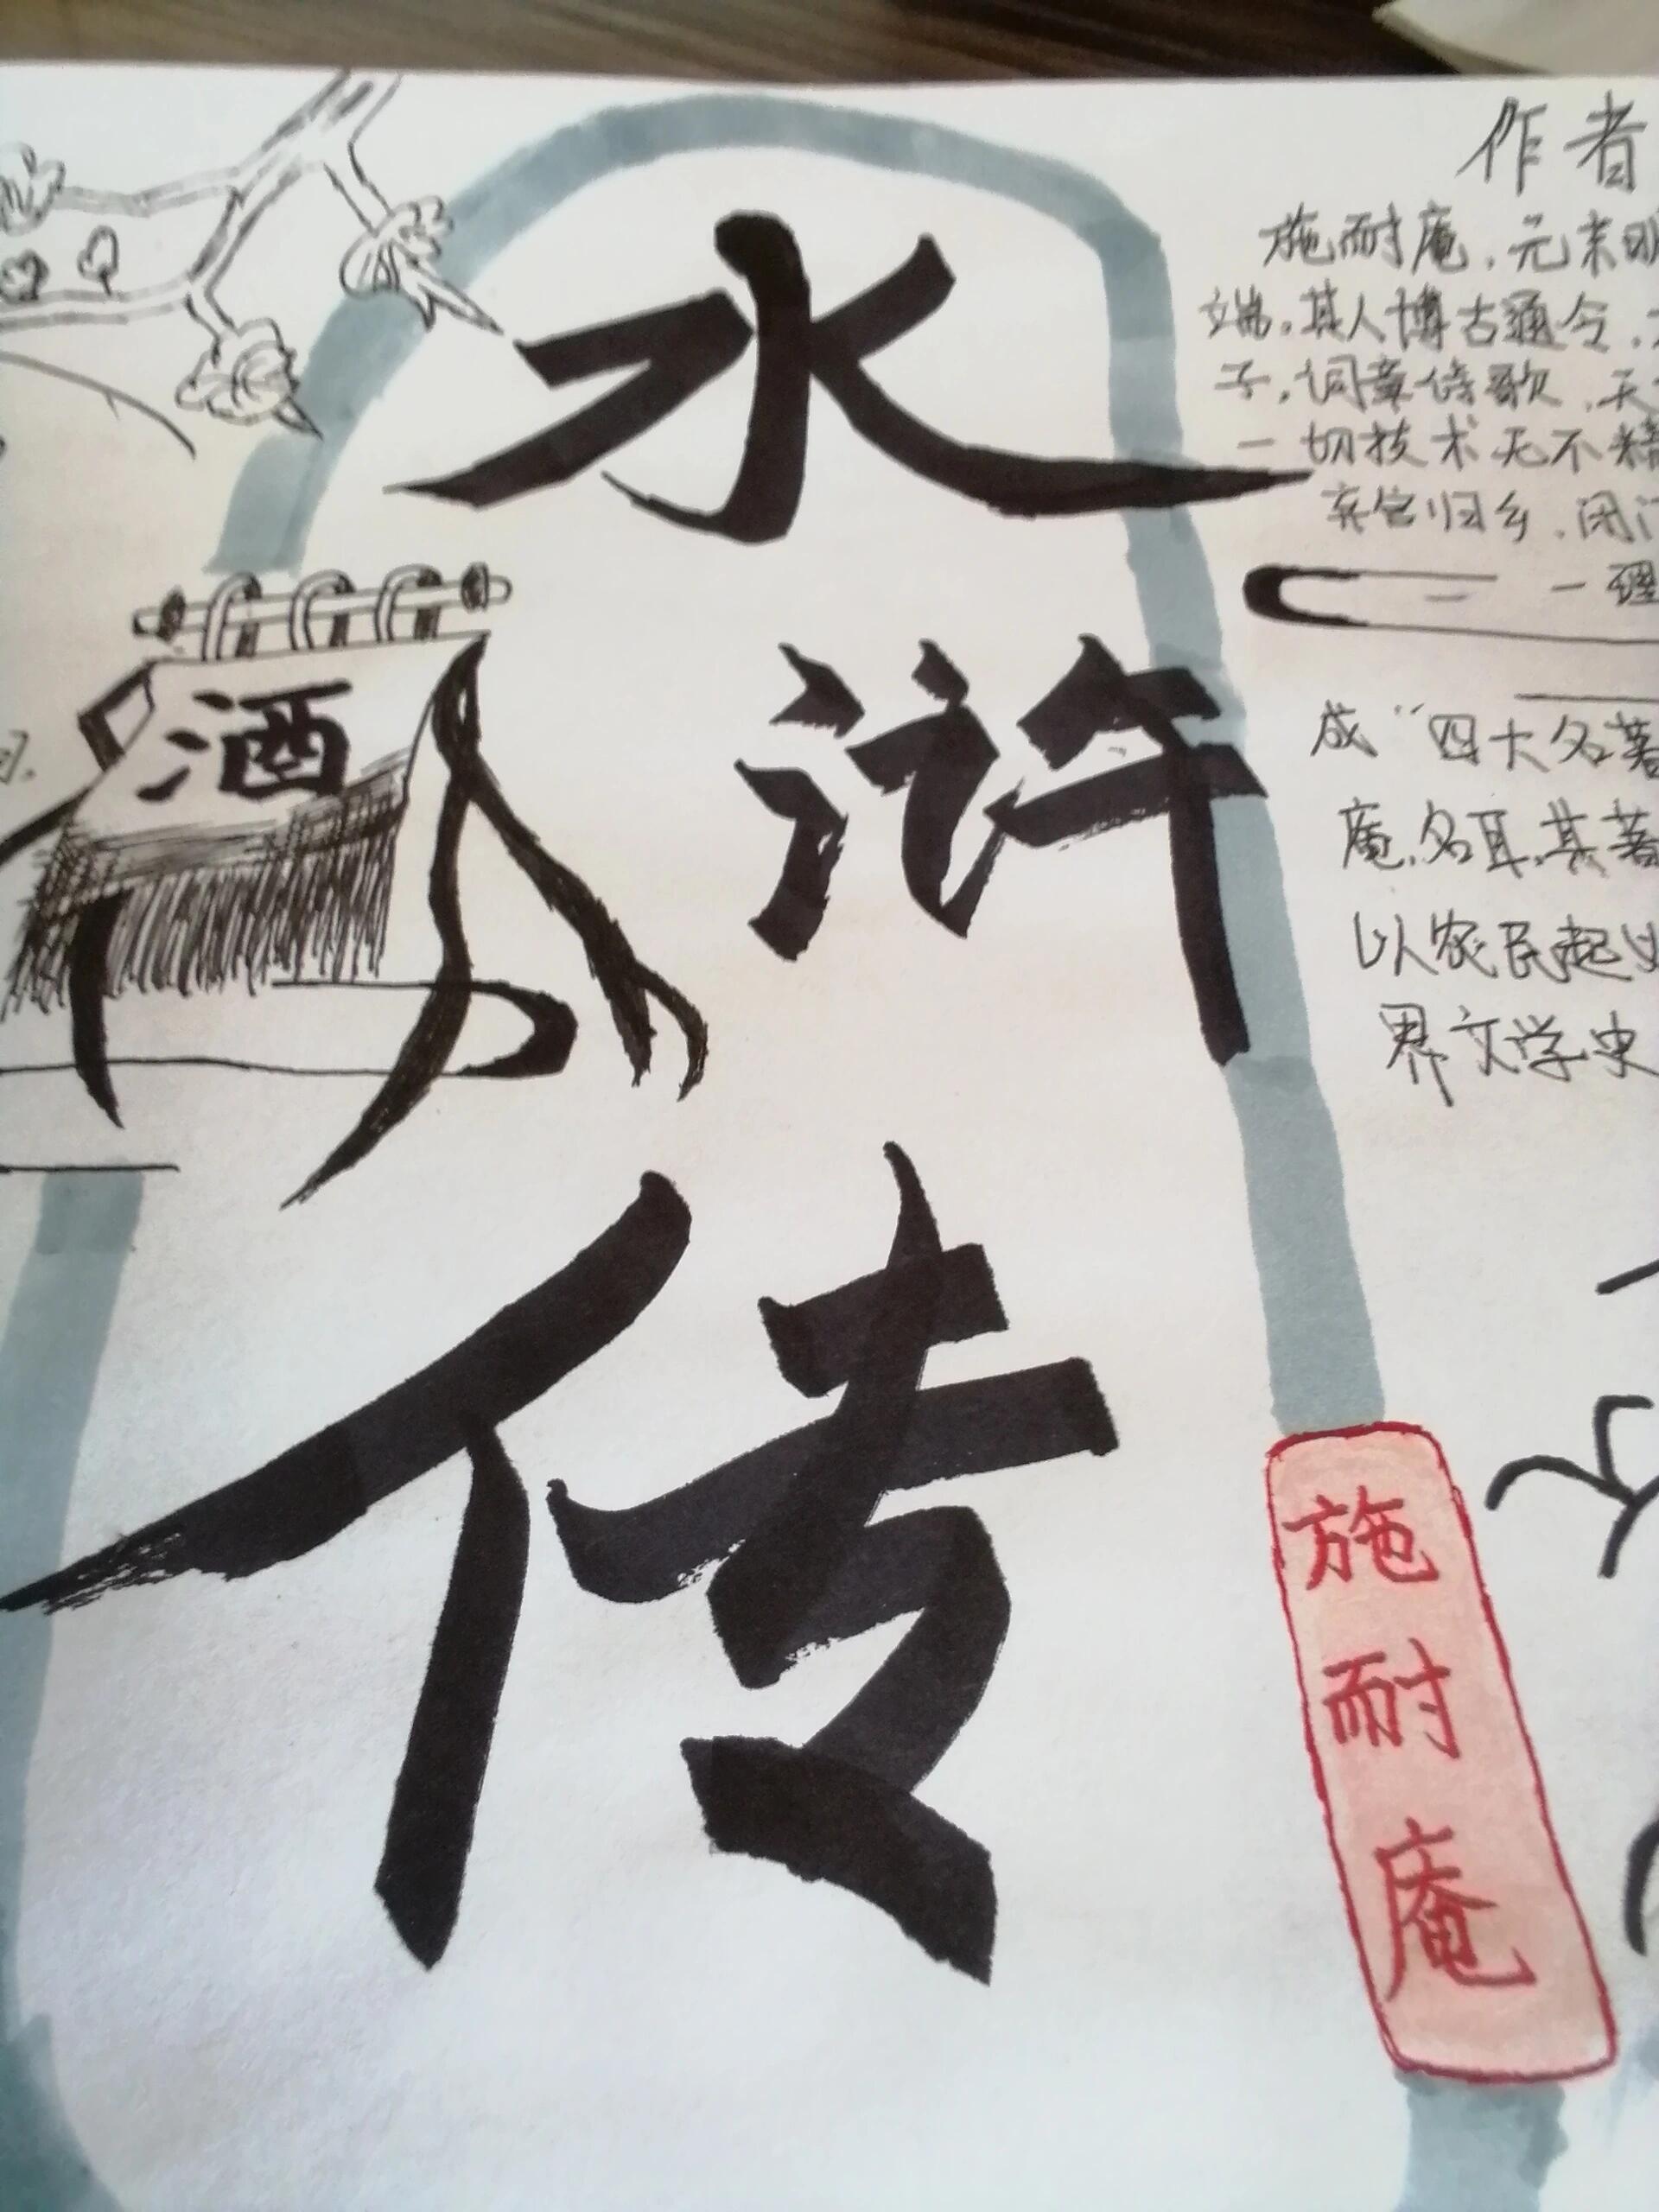 水
浒
传
酒
施
耐
庵
作者
施耐庵,元末明
端。其人博古通今,
子,词章诗歌,天
一切技术无不精
弃官归乡,闭门
一理
成“四大名著
庵,名耳,其著
以农民起义
界文学史